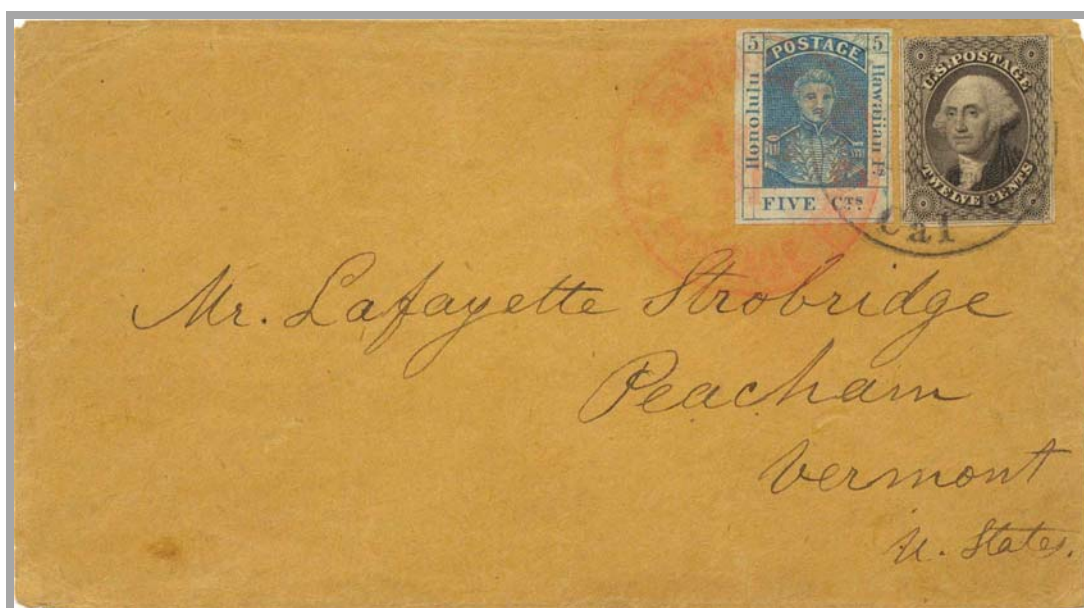 5 POSTAGE 5
Honolulu
Hawaiian Is.
FIVE Cts
U.S. POSTAGE
TWELVE CENTS
Cal
Mr. Lafayette Strobridge
Peacham
Vermont
U. States.